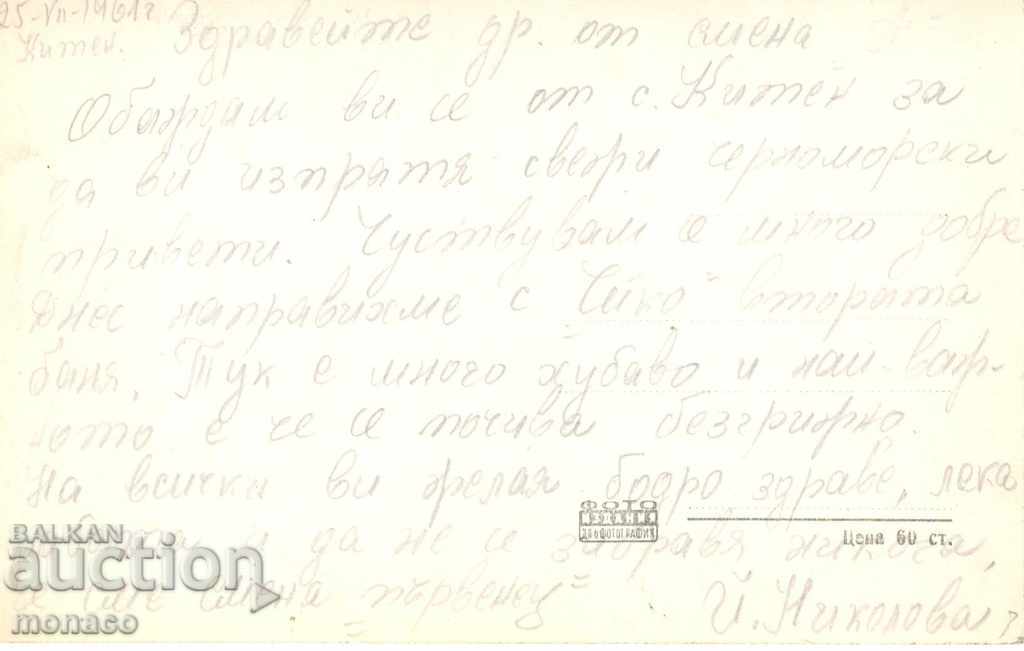 25-VII-1961 г
Китен.
Здравейте др. от смена
Обаждам ви се от с. Китен за
да ви изпратя свежи черноморски
привети. Чуствувам се много добре
Днес направихме с "Чико" втората
баня. Тук е много хубаво и най-важ-
ното е че се почива безгрижно.
На всички ви желая бодро здраве, лека
работа и да не се забравя никога,
че сме смяна първенец"
Й. Николова
ФОТО
ДПФОТОГРАФИЯ
Цена 60 ст.
BALKAN
auction
monaco